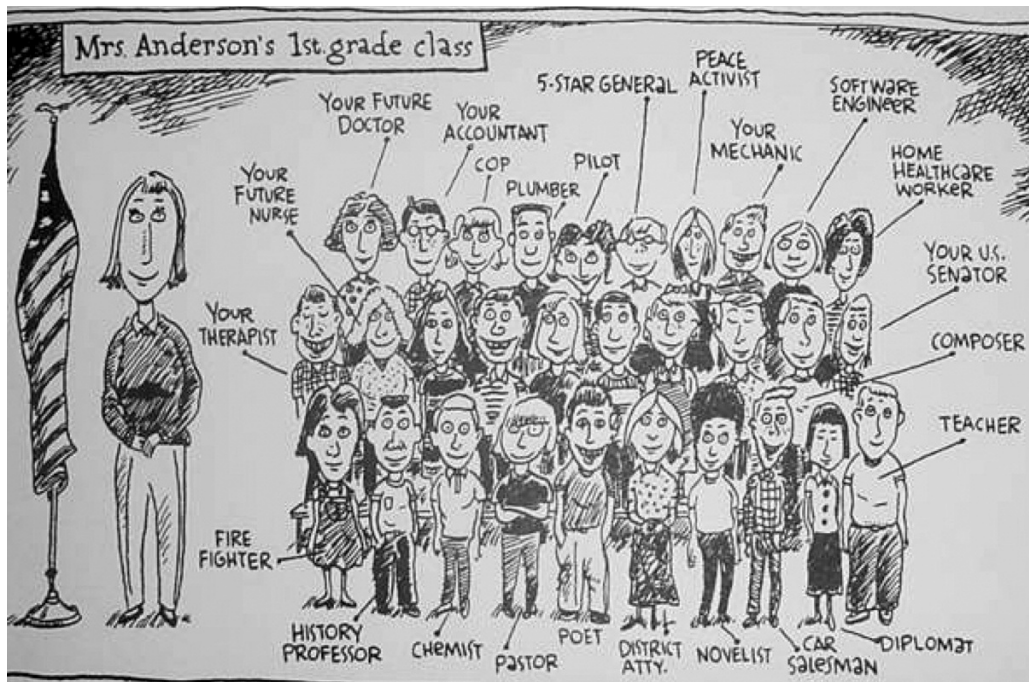 Mrs. Anderson's 1st. grade class
YOUR FUTURE
DOCTOR
YOUR
ACCOUNTANT
COP
PLUMBER
PILOT
5-STAR GENERAL
PEACE
ACTIVIST
YOUR
MECHANIC
SOFTWARE
ENGINEER
HOME
HEALTHCARE
WORKER
YOUR
FUTURE
NURSE
YOUR U.S.
SENATOR
YOUR
THERAPIST
COMPOSER
TEACHER
FIRE
FIGHTER
HISTORY
PROFESSOR
CHEMIST
PASTOR
POET
DISTRICT
ATTY.
NOVELIST
CAR
SALESMAN
DIPLOMAT